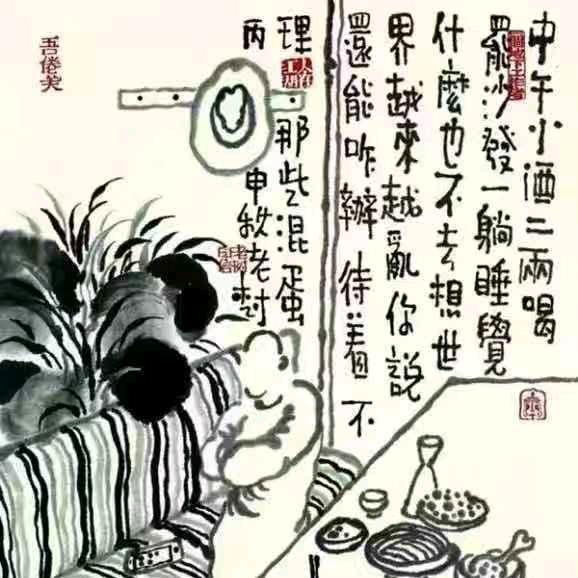 中午小酒二兩喝
罷沙發一躺睡覺
什麼也不去想世
界越來越亂你說
還能咋辦待着不
理那些混蛋
丙申秋老树
人在江湖
吾倦